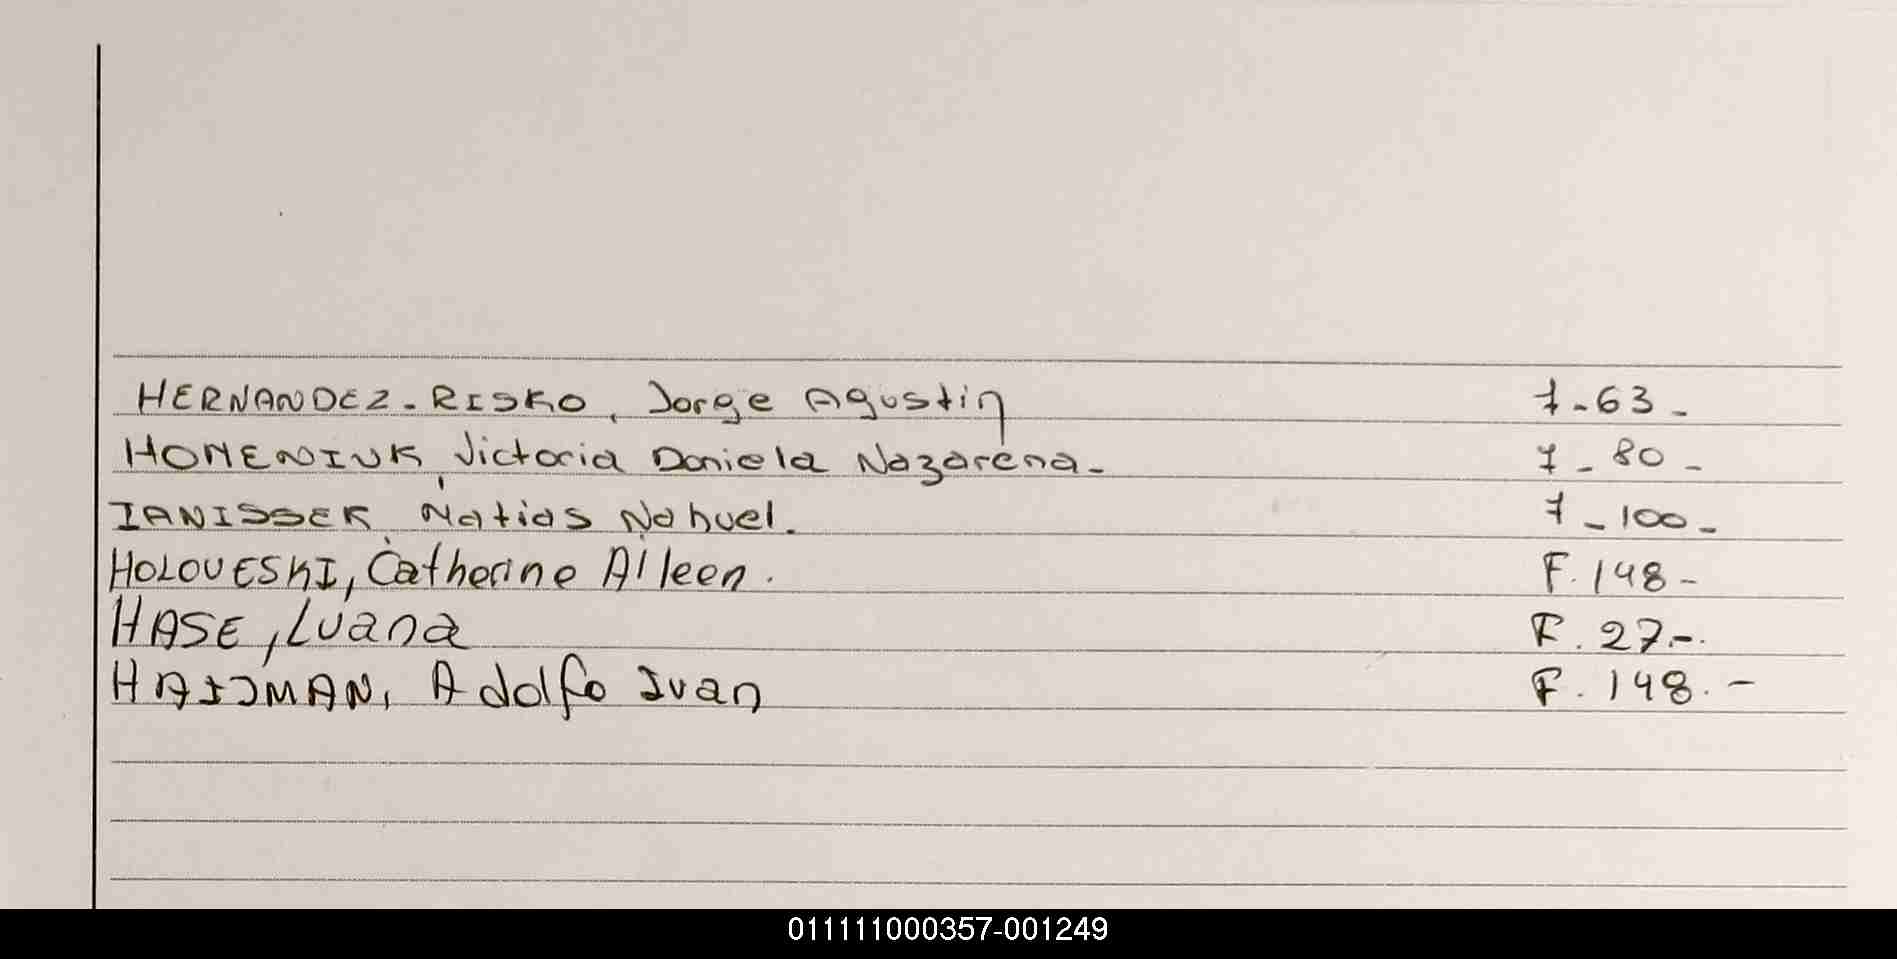 HERNANDEZ-RISKO, Jorge Agustin 7-63-
HOMENIUK, Victoria Daniela Nazarena- 7-80-
IANISSEK, Matias Nahuel. 7-100-
HOLOVESKI, Catherine Aileen. F. 148-
HASE, Luana F. 27-.
HAIJMAN, Adolfo Ivan F. 148.-
011111000357-001249